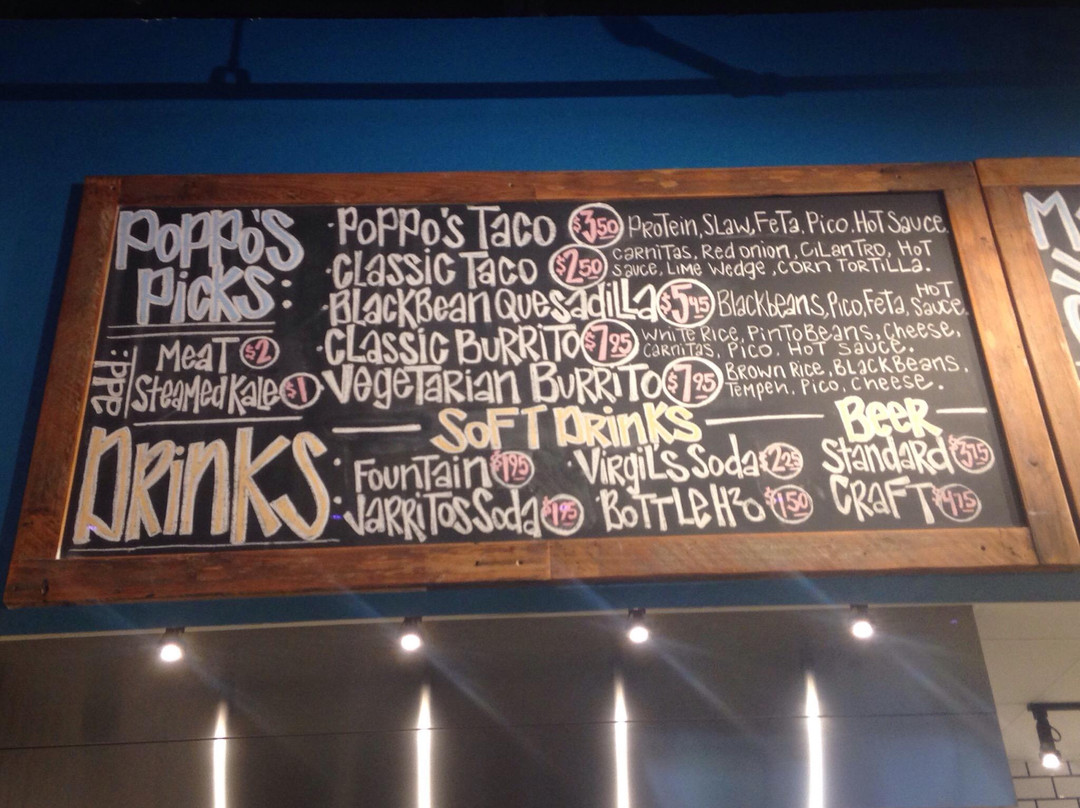 Poppo's Picks:
add: Meat $2
Steamed Kale $1
· Poppo's Taco $3.50 Protein, Slaw, Feta, Pico, Hot Sauce.
· Classic Taco $2.50 Carnitas, Red onion, Cilantro, Hot sauce, Lime Wedge, corn Tortilla.
· BlackBean Quesadilla $5.45 Blackbeans, Pico, Feta, Hot Sauce.
· Classic Burrito $7.95 White Rice, Pinto Beans, Cheese, Carnitas, Pico, Hot Sauce,
· Vegetarian Burrito $7.95 Brown Rice, Black Beans, Tempeh, Pico, Cheese.
Drinks:
Soft Drinks
Fountain $1.95
· Virgil's Soda $2.25
Jarritos Soda $1.95
· Bottle H2o $1.50
Beer
Standard $3.75
Craft $4.75